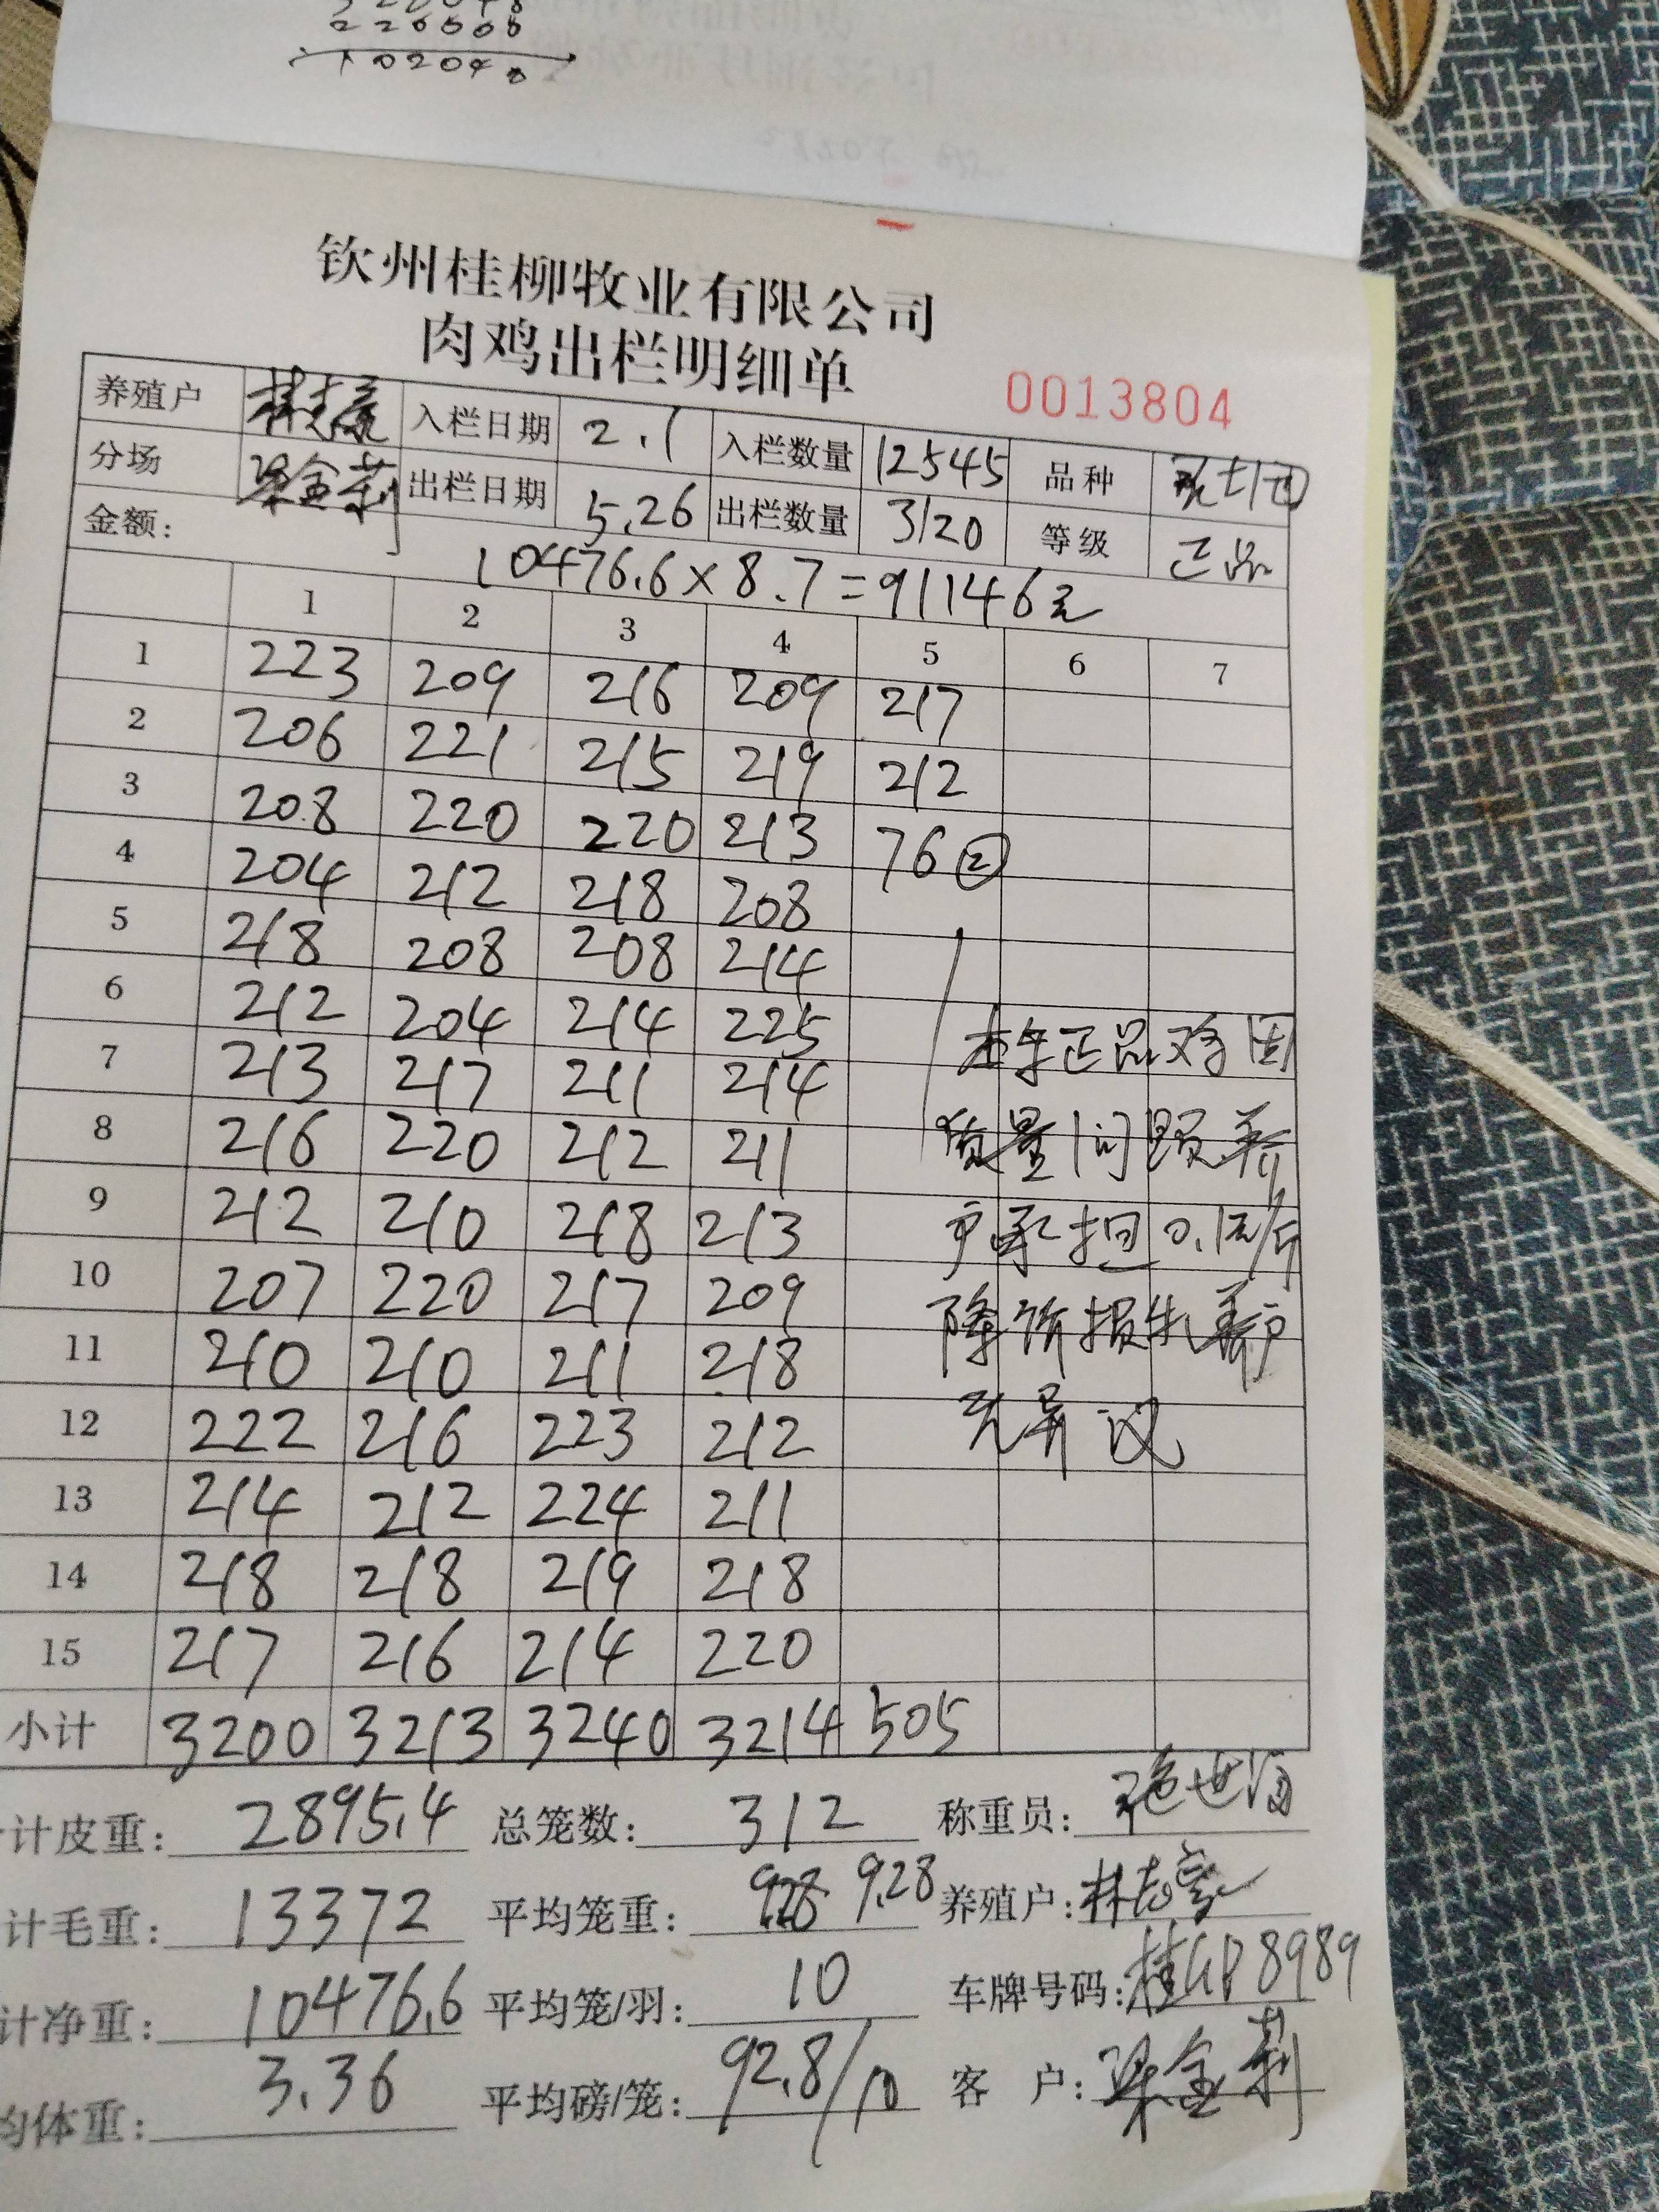 226508
102040
钦州桂柳牧业有限公司
肉鸡出栏明细单
0013804
养殖户 入栏日期 2.1 入栏数量 12545 品种
分场 梁金莉 出栏日期 5.26 出栏数量 3120 等级 正品
金额: 10476.6×8.7=91146元
1 2 3 4 5 6 7
1 223 209 216 209 217
2 206 221 215 219 212
3 208 220 220 213 76②
4 204 212 218 208
5 218 208 208 214
6 212 204 214 225
7 213 217 211 214
8 216 220 212 211
9 212 210 218 213
10 207 220 217 209
11 210 210 211 218
12 222 216 223 212
13 214 212 224 211
14 218 218 219 218
15 217 216 214 220
小计 3200 3213 3240 3214 505
本车正品鸡因
质量问题养
户承担0.1元/斤
降价损失养户
无异议
计皮重: 2895.4 总笼数: 312 称重员:
计毛重: 13372 平均笼重: 9.28 养殖户: 林志豪
计净重: 10476.6 平均笼/羽: 10 车牌号码: 桂GP8989
均体重: 3.36 平均磅/笼: 92.8/10 客户: 梁金莉